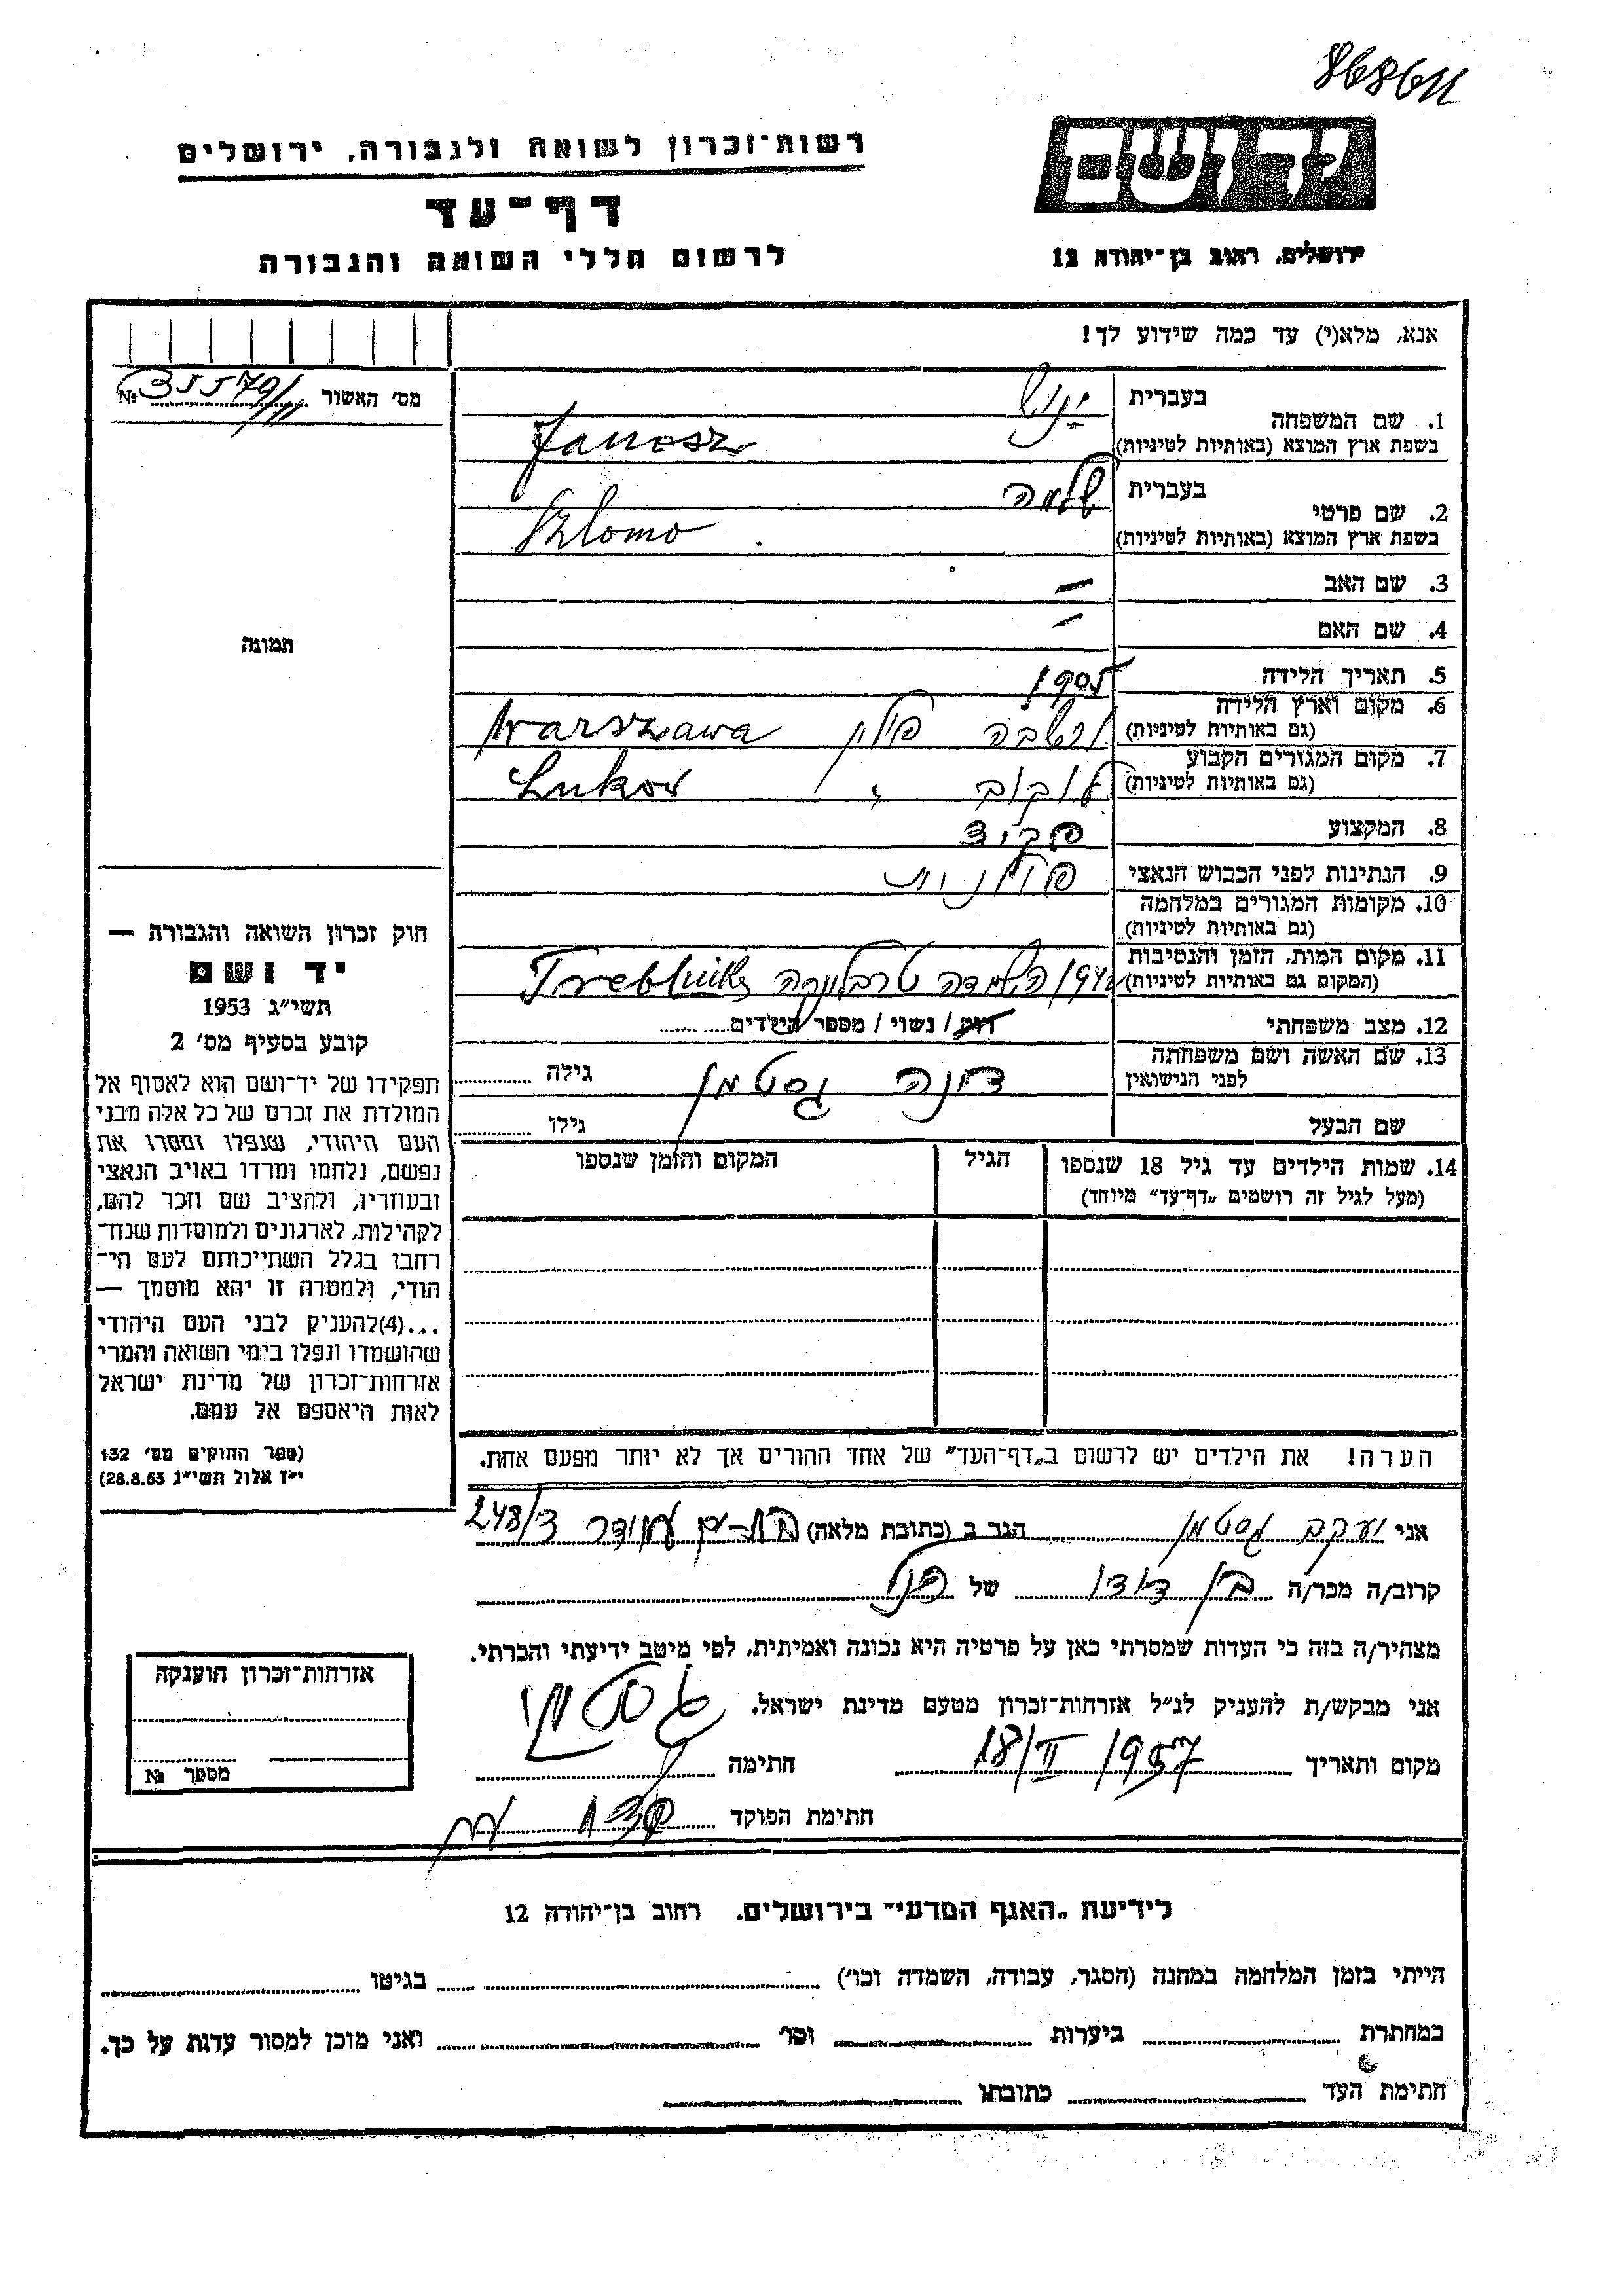 868611
יד ושם
רשות־זכרון לשואה ולגבורה, ירושלים
דף־עד
לרשום חללי השואה והגבורה
ירושלים, רחוב בן־יהודה 12
אנא, מלא(י) עד כמה שידוע לך!
מס' האשור № 35579/11
תמונה
חוק זכרון השואה והגבורה —
יד ושם
תשי״ג 1953
קובע בסעיף מס' 2
תפקידו של יד־ושם הוא לאסוף אל
המולדת את זכרם של כל אלה מבני
העם היהודי, שנפלו ומסרו את
נפשם, נלחמו ומרדו באויב הנאצי
ובעוזריו, ולהציב שם וזכר להם,
לקהילות, לארגונים ולמוסדות שנח־
רחבו בגלל השתייכותם לעם הי־
הודי, ולמטרה זו יהא מוסמך —
...(4)להעניק לבני העם היהודי
שהושמדו ונפלו בימי השואה והמרי
אזרחות־זכרון של מדינת ישראל
לאות היאספם אל עמם.
(ספר החוקים מס' 132
י״ז אלול תשי״ג 28.8.53)
1. שם המשפחה
בעברית ינוש
בשפת ארץ המוצא (באותיות לטיניות) Janesz
2. שם פרטי
בעברית שלמה
בשפת ארץ המוצא (באותיות לטיניות) Szlomo
3. שם האב —
4. שם האם —
5. תאריך הלידה 1905
6. מקום וארץ הלידה
(גם באותיות לטיניות) ורשבה פולין Warszawa
7. מקום המגורים הקבוע
(גם באותיות לטיניות) לוקוב Lukov
8. המקצוע פקיד
9. הנתינות לפני הכבוש הנאצי פולנית
10. מקומות המגורים במלחמה
(גם באותיות לטיניות)
11. מקום המות, הזמן והנסיבות
(המקום גם באותיות לטיניות) 1942 השמדה טרבלינקה Treblinka
12. מצב משפחתי רווק / נשוי / מספר הילדים
13. שם האשה ושם משפחתה
לפני הנישואין גסטמן גילה
שם הבעל גילו
14. שמות הילדים עד גיל 18 שנספו הגיל המקום והזמן שנספו
(מעל לגיל זה רושמים „דף־עד״ מיוחד)
הערה! את הילדים יש לרשום ב„דף־העד״ של אחד ההורים אך לא יותר מפעם אחת.
אני יעקב גסטמן הגר ב (כתובת מלאה) בת-ים 248/3
קרוב/ה מכר/ה בן דודו של
מצהיר/ה בזה כי העדות שמסרתי כאן על פרטיה היא נכונה ואמיתית, לפי מיטב ידיעתי והכרתי.
אני מבקש/ת להעניק לנ״ל אזרחות־זכרון מטעם מדינת ישראל.
מקום ותאריך 18/II 1957 חתימה גסטמן
חתימת הפוקד
אזרחות־זכרון הוענקה
מספר №
לידיעת „האגף המדעי״ בירושלים. רחוב בן־יהודה 12
הייתי בזמן המלחמה במחנה (הסגר, עבודה, השמדה וכו') בגיטו
במחתרת ביערות וכו' ואני מוכן למסור עדות על כך.
חתימת העד כתובתו